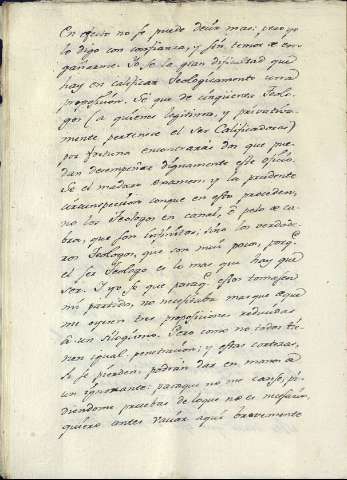 En efecto no se puede decir mas: pero yo
lo digo con confianza, y sin temor de en-
gañarme. Yo se la gran dificultad que
hay en calificar Teologicamente una
proposicion. Se que de cinquenta Teolo-
gos (a quienes legitima, y privativa-
mente pertenece el ser Calificadores)
por fortuna encontrarà dos que pue-
dan desempeñar dignamente este oficio.
Se el maduro examen, y la prudente
circunspeccion conque en esto proceden,
no los Teologos en canal, ò pelo de ca-
bra, que son infinitos; sino los verdade-
ros Teologos, que son mui pocos, porq.e
el ser Teologo es lo mas que hay que
ser. Y yo se que paraq.e estos tomasen
mi partido, no necesitaba mas que de que
me oyesen tres proposiciones reducidas
à un silogismo. Pero como no todos tie-
nen igual penetracion; y estas cortezas,
si se pierden, podràn dar en manos de
un ignorante: paraque no me canse, pi-
diendome pruebas de loque no es necesario,
quiero antes vaciar aqui brevemente